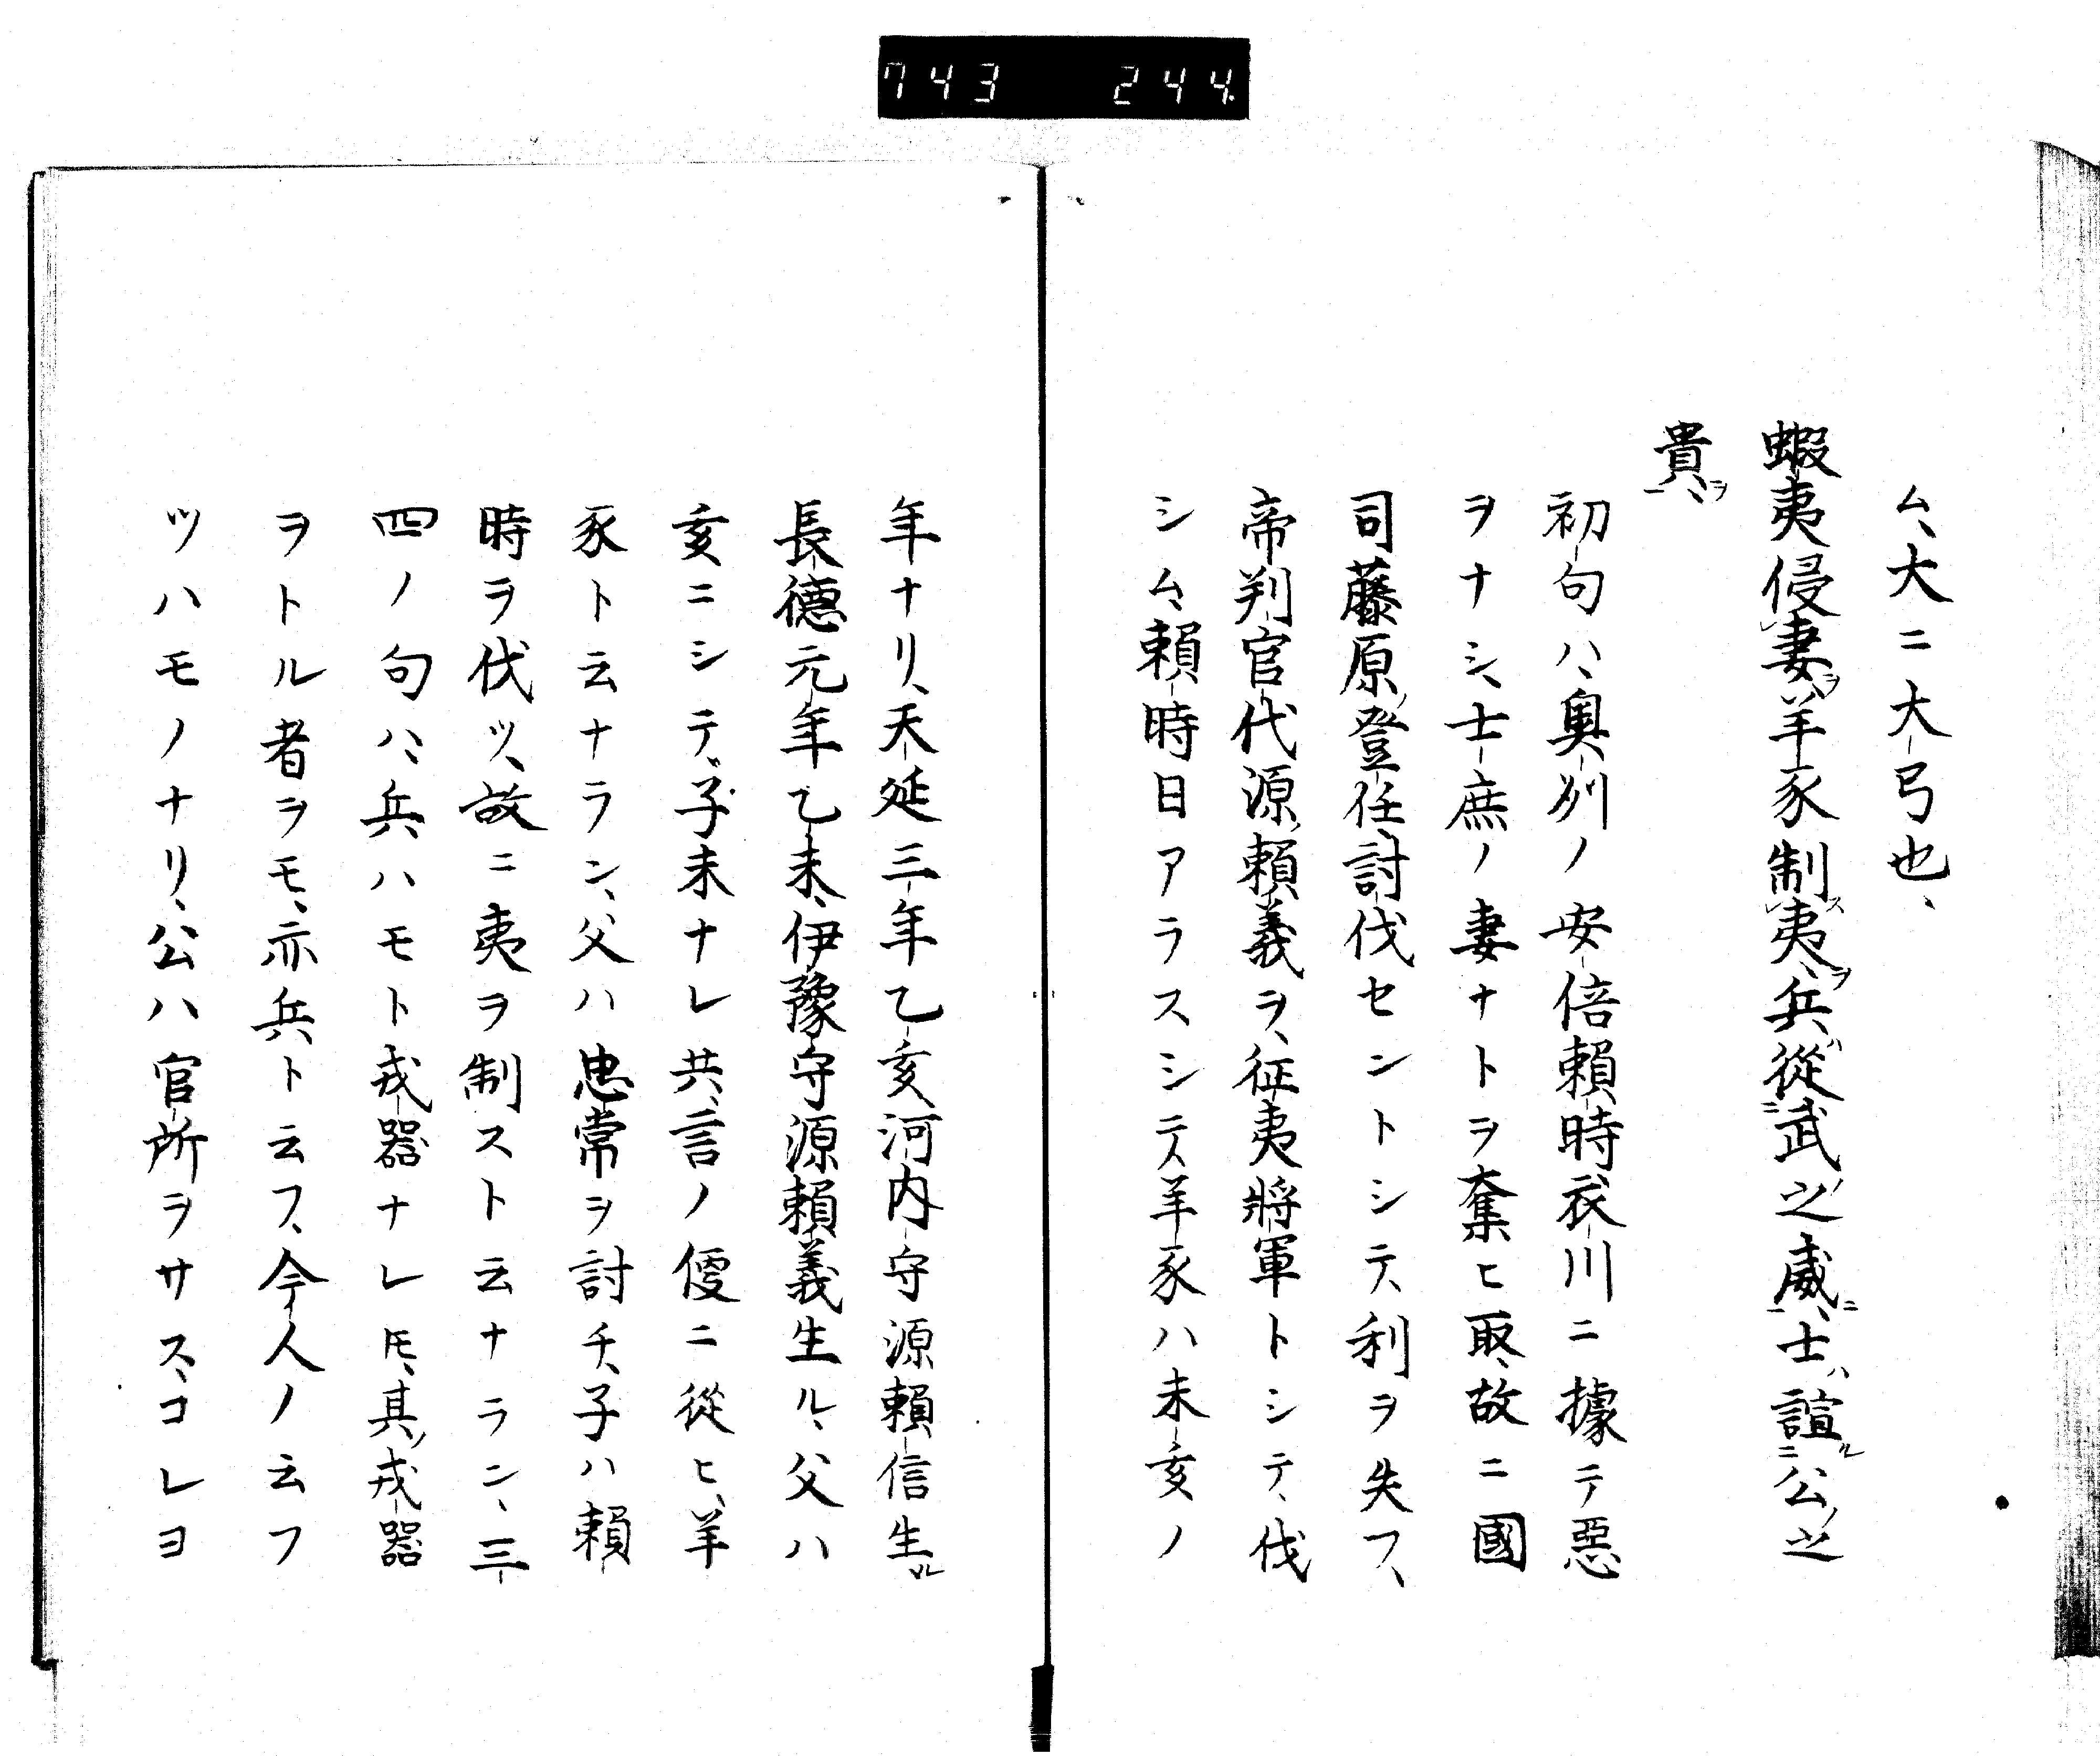 743 244
ム、大ニ大弓也、
蝦夷侵妻ヲ、羊豕制ス夷ヲ、兵ハ從武之威ニ、士ハ誼ル公ノ之
貴ヲ、
初句ハ、奥州ノ安倍頼時衣川ニ據テ惡
ヲナシ、士庶ノ妻ナトヲ奪ヒ取、故ニ國
司藤原ノ登任、討伐セントシテ、利ヲ失フ、
帝判官代源ノ頼義ヲ、征夷將軍トシテ、伐
シム、頼時日アラスシテ、羊豕ハ未亥ノ
年ナリ、天延三年乙亥、河内守源頼信生ル
長徳元年乙未、伊豫守源頼義生ル、父ハ
亥ニシテ、子未ナレ共、言ノ便ニ從ヒ、羊
豕ト云ナラン、父ハ忠常ヲ討チ、子ハ頼
時ヲ伐ツ、故ニ夷ヲ制スト云ナラン、三
四ノ句ハ、兵ハモト戎器ナレ𪜈、其ノ戎器
ヲトル者ヲモ、亦兵ト云フ、今人ノ云フ
ツハモノナリ、公ハ官所ヲサス、コレヨ